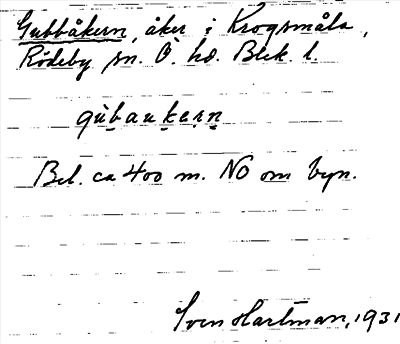 Gubbåkern, åker i Krogsmåla,
Rödeby sn. Ö. hd. Blek. l.
gùbaukern
Bel. ca 400 m. NO om byn.
Sven Hartman, 1931